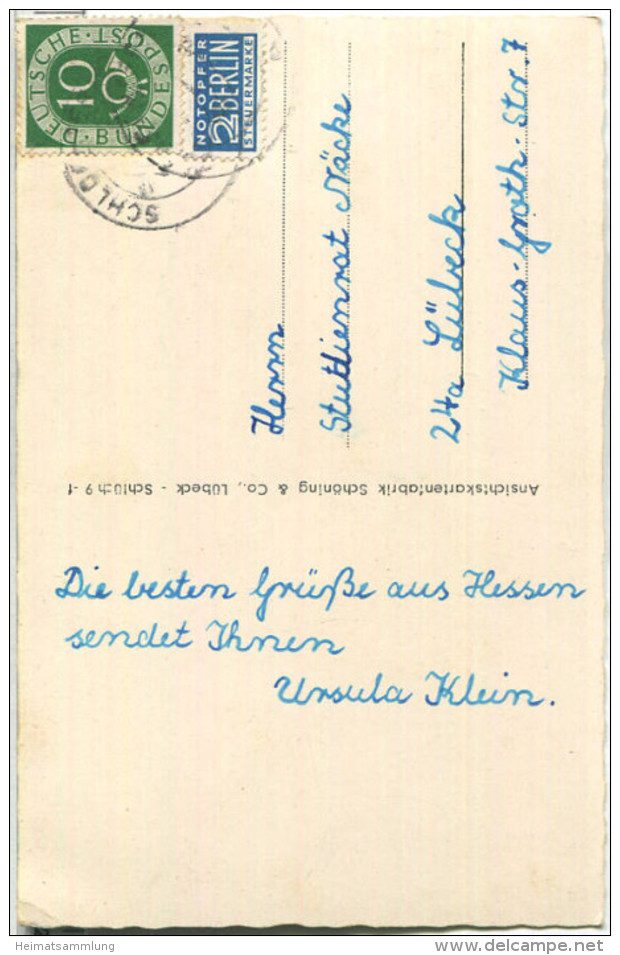 DEUTSCHE BUNDESPOST
10
NOTOPFER
2 BERLIN
STEUERMARKE
Herrn
Studienrat Näcke
24a Lübeck
Klaus-Groth-Str. 7
Ansichtskartenfabrik Schöning & Co., Lübeck - Schlüch 9 -f
Die besten Grüße aus Hessen
sendet Ihnen
Ursula Klein.
Heimatsammlung
www.delcampe.net